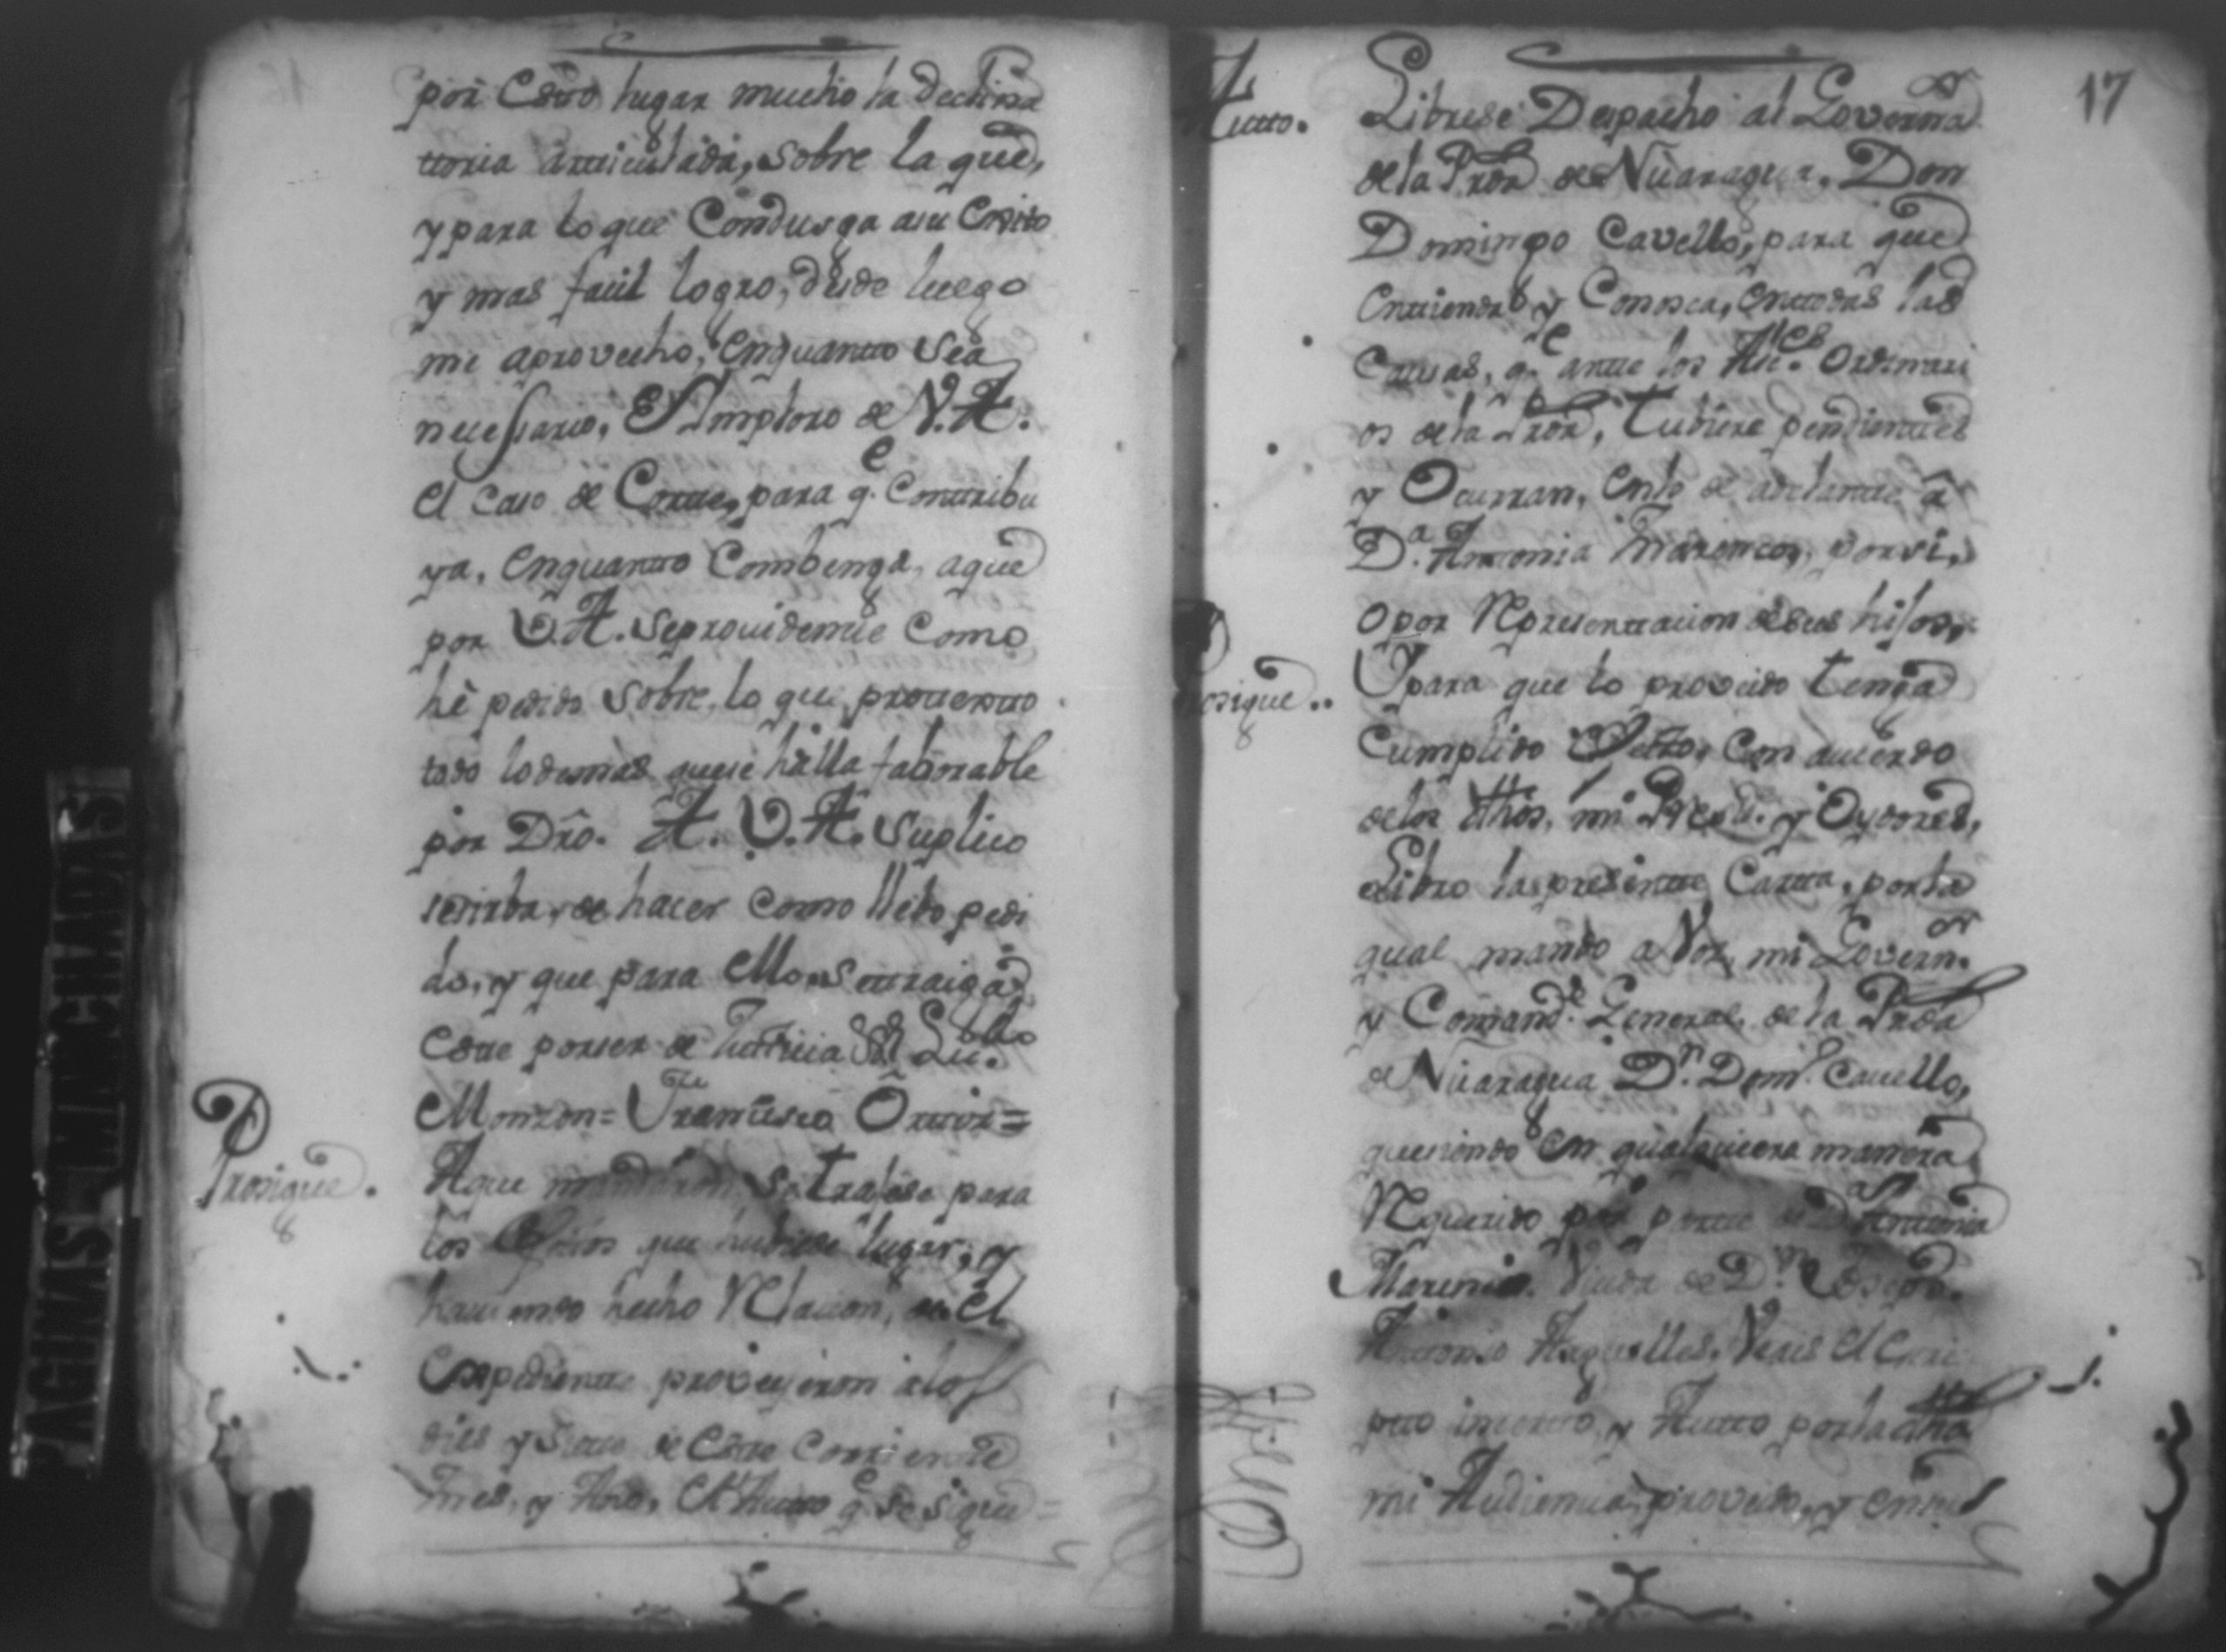 por Cstto lugar mucho la declina
ttoria artticulada, sobre la que,
y para lo que Condusga asu Exsito
y mas facil logro, desde luego
me aprovecho, enquantto sea
necessario, E Ymploro de V. A.
el Caso de Cortte, para q.e Conttribu
ya, enquantto Combenga, aque
por V. A. se providenzie Como
hé pedido sobre lo que protextto
todo lodemas que se halla faborable
por Dro. A. V. A. Suplico
se sirba, de hacer como llebo pedi
do, y que para ello, se ttraiga
Estte por ser de Justticia Lic.do
Monzon = Francisco Orttiz =
Prosigue.
Aque mandaron se trajese para
los efectos que hubiese lugar, y
haciendo hecho Relacion, en el
Expedientte proveyeron alos
dies y siette de Estte Corrientte
mes, y Año, el Autto q.e se sigue =
17
Autto.
Librese Despacho al Governa.or
dela Prov.a de Nicaragua, Don
Domingo Cavello, para que
Enttienda y Conosca, Enttodas las
Causas, q.e antte los Alc.es Ordinari
os dela Prov.a, tubiere pendienttes
y Ocurran, enlo de adelantte, a
D.a Anttonia Marenco, por si,
o por Representtacion de sus hijos,
Prosigue..
Y para que lo proveido tenga
Cumplido efectto, Con acuerdo
delos dthos, mi Presd.te y Oydores,
Libro la presentte Cartta, por la
qual mando a Vos, mi Govern.or
y Comand.te General, de la Prov.a
de Nicaragua D.n Dom.o Cavello,
que siendo en qualquiera manera
Requerido por partte de D.a Anttonia
Marenco, Viuda de D.n Joseph
Anttonio Arguelles, Veais el Escri
pto insertto, y Autto por la dtha
mi Audiencia, proveido, y en su